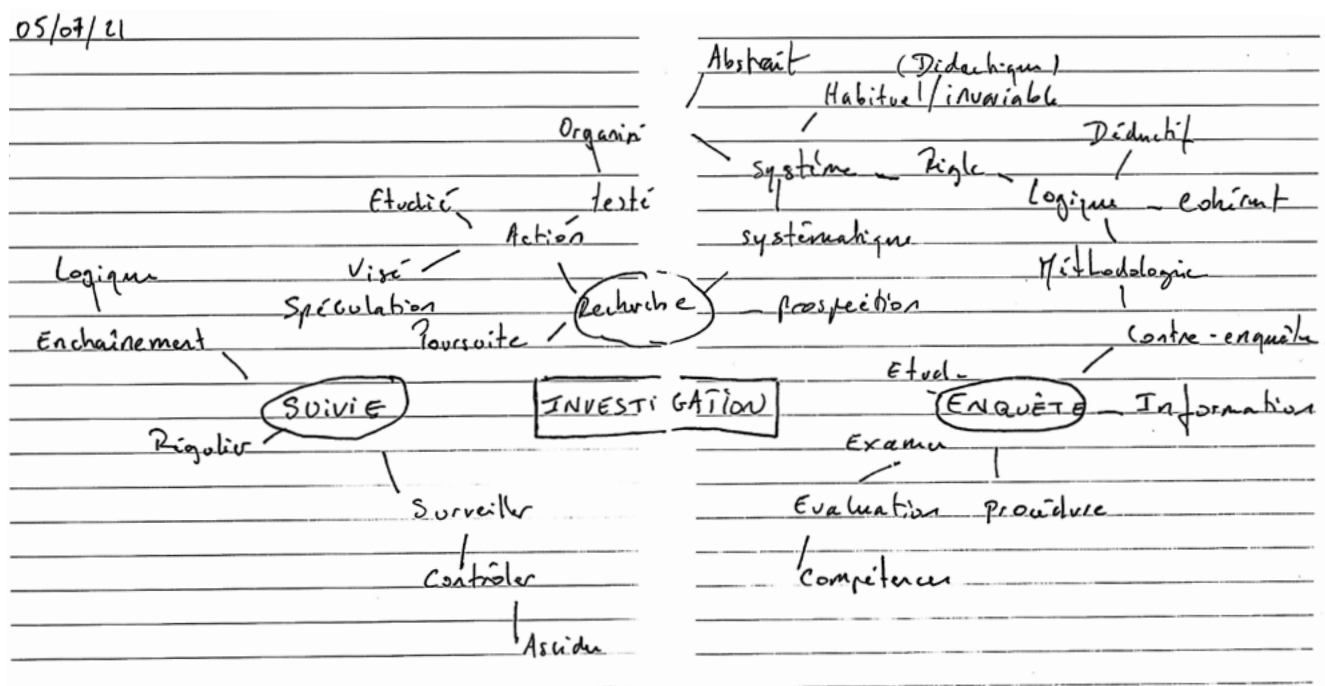 05/07/21
Abstrait
(Didactique)
Habituel/invariable
Organisé
Déductif
Système
Règle
Etudié
testé
Logique
Cohérent
Action
systématique
Logique
Visé
Méthodologie
Spéculation
Recherche
prospection
Enchaînement
Poursuite
Contre-enquête
Etude
SUIVIE
INVESTIGATION
ENQUÊTE
Information
Régulier
Examen
Surveiller
Evaluation
procédure
Contrôler
Compétences
Ascidu